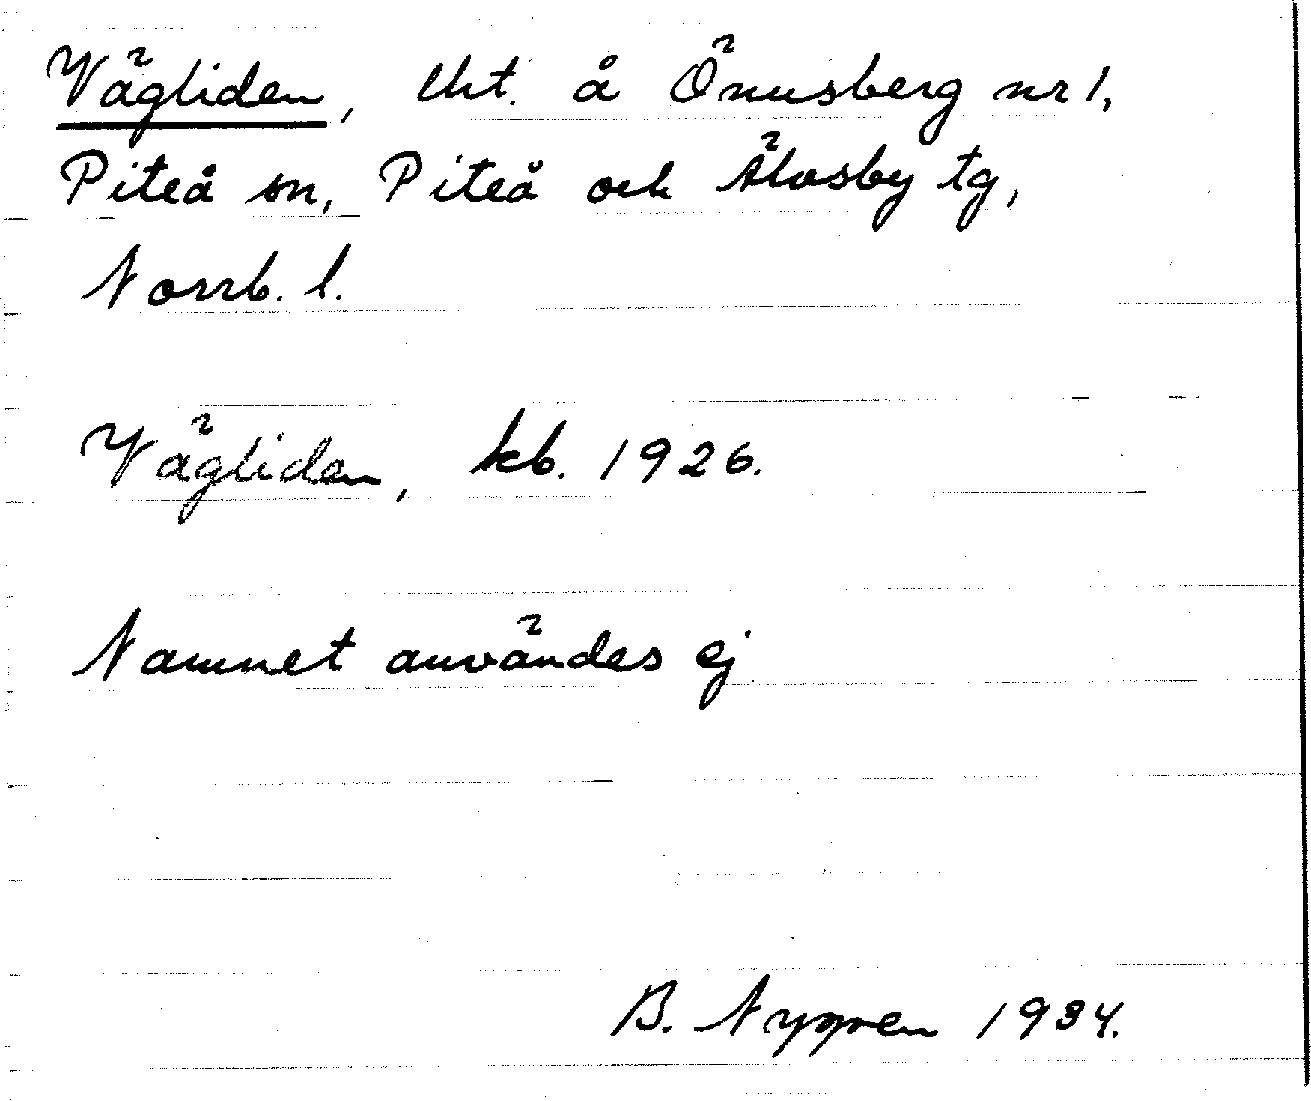 Vägliden, lht. å Önusberg nr 1,
Piteå sn, Piteå och Älvsby tg,
Norrb. l.
Vägliden, kb. 1926.
Namnet användes ej
B. Nygren 1934.